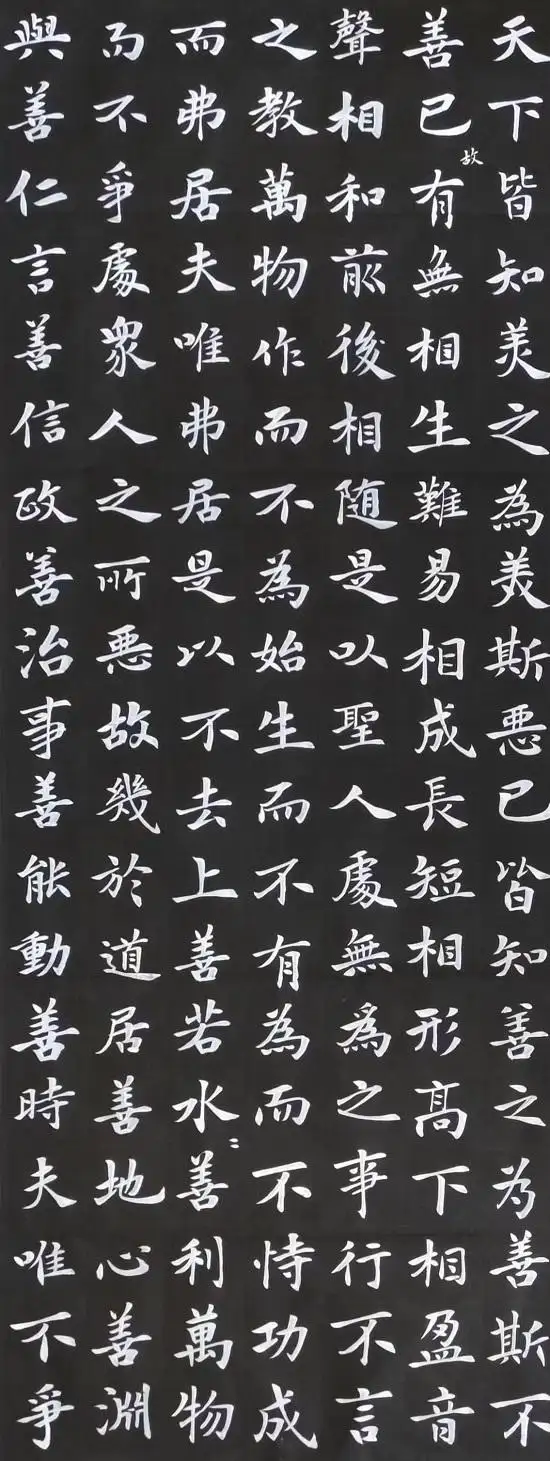 天下皆知美之為美斯悪已皆知善之为善斯不
善已故有無相生難易相成長短相形髙下相盈音
聲相和前後相随是以聖人處無爲之事行不言
之教萬物作而不為始生而不有為而不恃功成
而弗居夫唯弗居是以不去上善若水〻善利萬物
而不爭處衆人之所悪故幾於道居善地心善淵
與善仁言善信政善治事善能動善時夫唯不爭